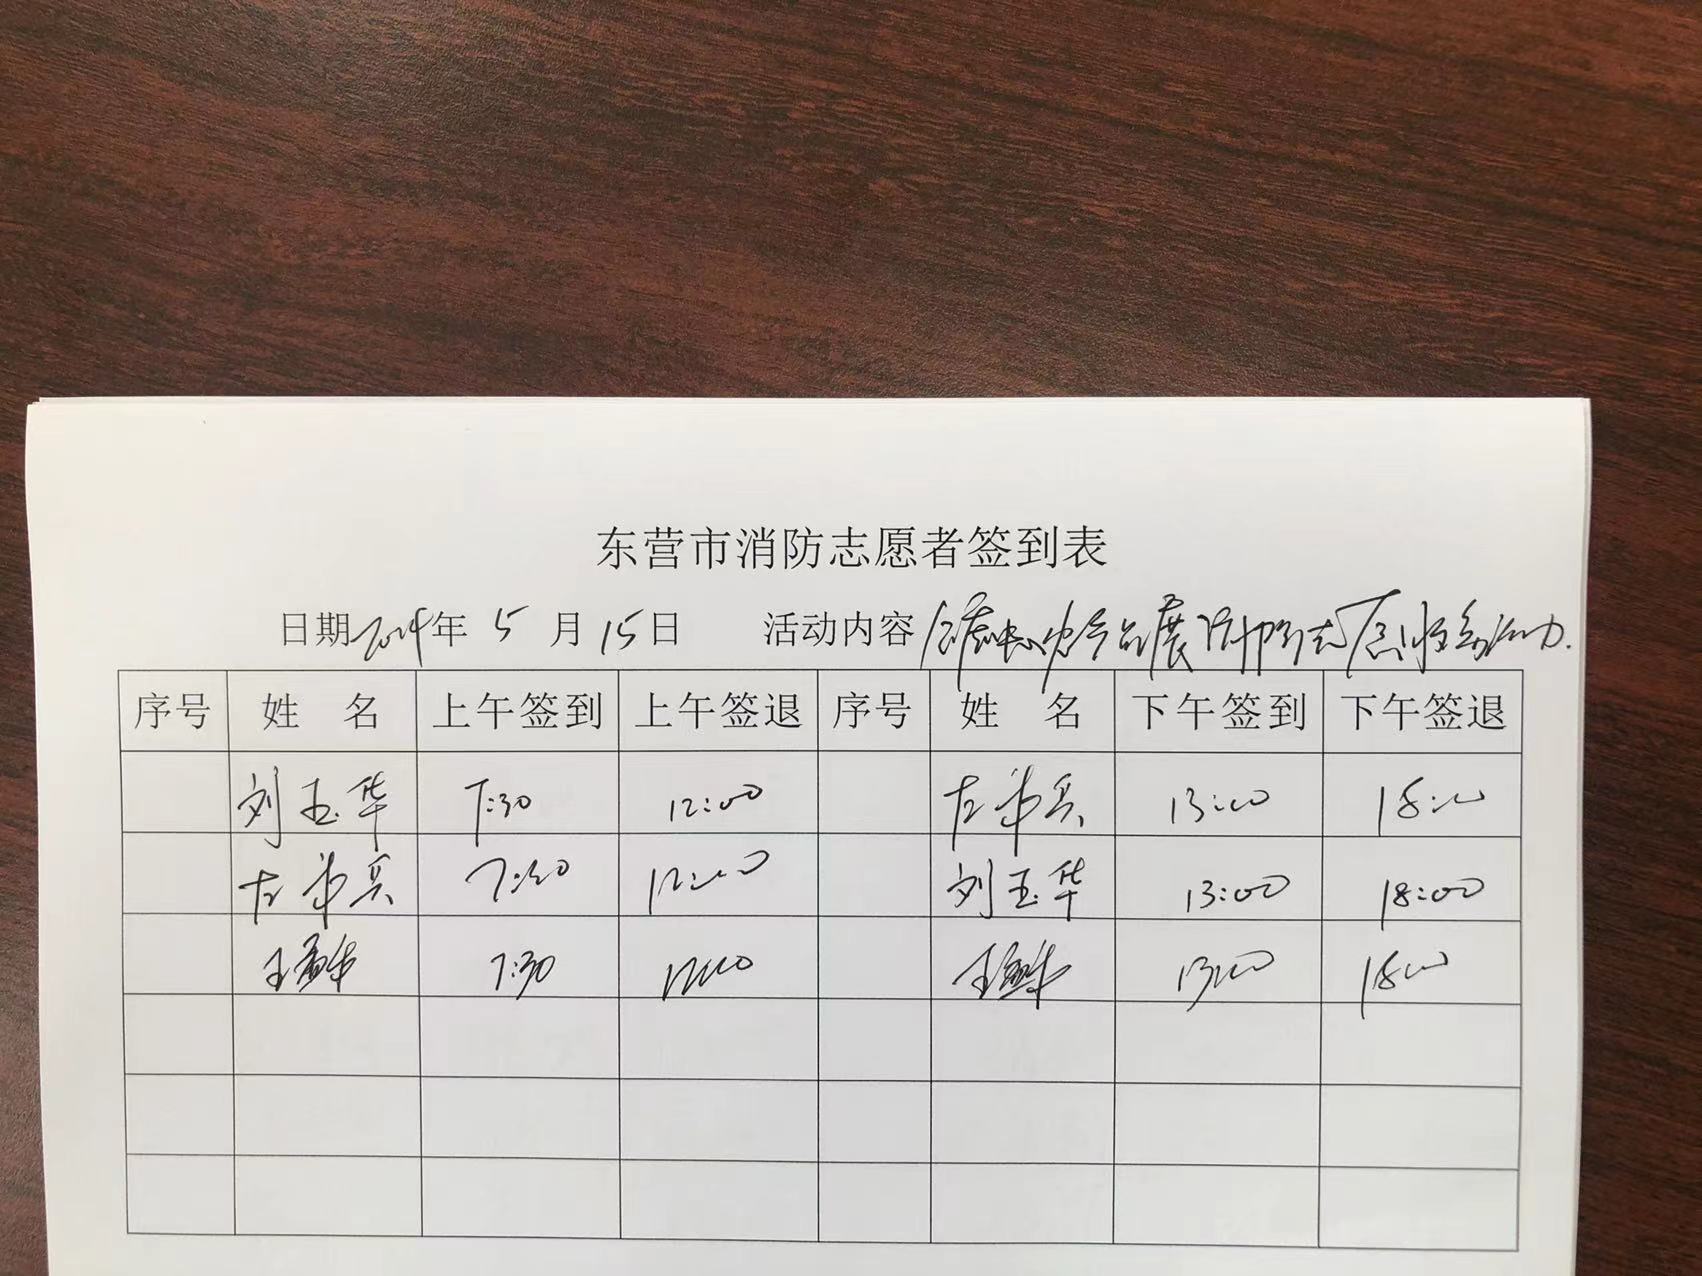 东营市消防志愿者签到表
日期2024年 5 月 15日 活动内容
序号 姓 名 上午签到 上午签退 序号 姓 名 下午签到 下午签退
刘玉华 7:30 12:00 左 兵 13:00 18:00
左 兵 7:30 12:00 刘玉华 13:00 18:00
王 7:30 12:00 王 13:00 18:00